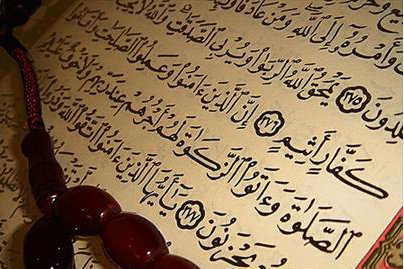 وَأَمْرُهُۥٓ إِلَى ٱللَّهِ وَمَنْ عَادَ
لِدُونَ ٢٧٥ يَمْحَقُ ٱللَّهُ ٱلرِّبَوٰا۟ وَيُرْبِى ٱلصَّدَقَٰتِ وَٱللَّهُ لَا يُحِبُّ
كَفَّارٍ أَثِيمٍ ٢٧٦ إِنَّ ٱلَّذِينَ ءَامَنُوا۟ وَعَمِلُوا۟ ٱلصَّٰلِحَٰتِ وَأَقَامُوا۟
ٱلصَّلَوٰةَ وَءَاتَوُا۟ ٱلزَّكَوٰةَ لَهُمْ أَجْرُهُمْ عِندَ رَبِّهِمْ وَلَا خَوْفٌ
يَحْزَنُونَ ٢٧٧ يَٰٓأَيُّهَا ٱلَّذِينَ ءَامَنُوا۟ ٱتَّقُوا۟ ٱللَّهَ وَذَرُوا۟